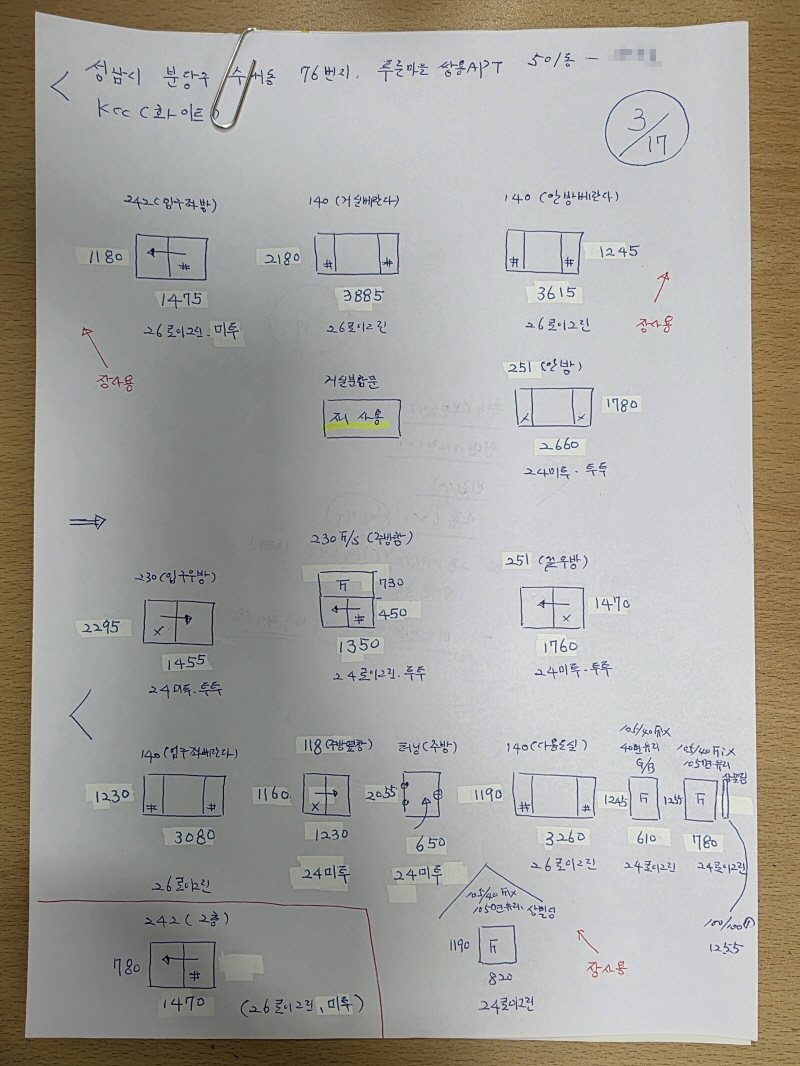 성남시 분당구 수내동 76번지. 푸른마을 쌍용APT 501동 -
KCC (화이트)
3/17
242(입구좌방)
1180
1475
26로이그린·미투
장사용
140 (거실베란다)
2180
3885
26로이그린
140 (안방베란다)
1245
3615
26로이그린
장사용
거실분합문
재 사용
251 (안방)
1780
2660
24미투·투투
230(입구우방)
2295
1455
24미투·투투
230 F/S (주방창)
F
730
450
1350
24로이그린·투투
251 (끝우방)
1470
1760
24미투·투투
140 (입구좌베란다)
1230
3080
26로이그린
118 (주방옆창)
1160
1230
24미투
터닝 (주방)
2055
650
24미투
140 (다용도실)
1190
3260
26로이그린
105/40 Fix
40면유리
G/B
1245
F
610
24로이그린
105/40 Fix
105면유리
1255
F
780
24로이그린
100/100
1255
105/40 Fix
105면유리,
1190
F
820
24로이그린
장사용
242 (2층)
780
1470
(26로이그린, 미투)